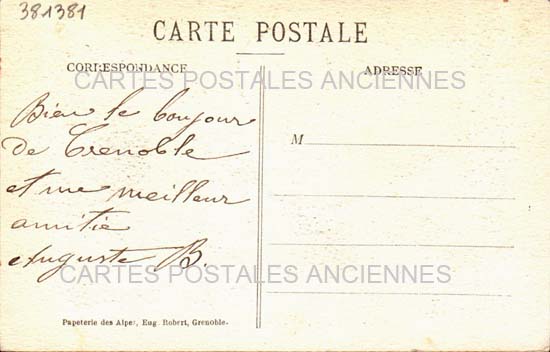 381381
CARTE POSTALE
CORRESPONDANCE
ADRESSE
CARTES POSTALES ANCIENNES
Bien le bonjour
de Grenoble
et ma meilleur
amitie
Auguste B.
M
CARTES POSTALES ANCIENNES
Papeterie des Alpes, Eug. Robert, Grenoble.